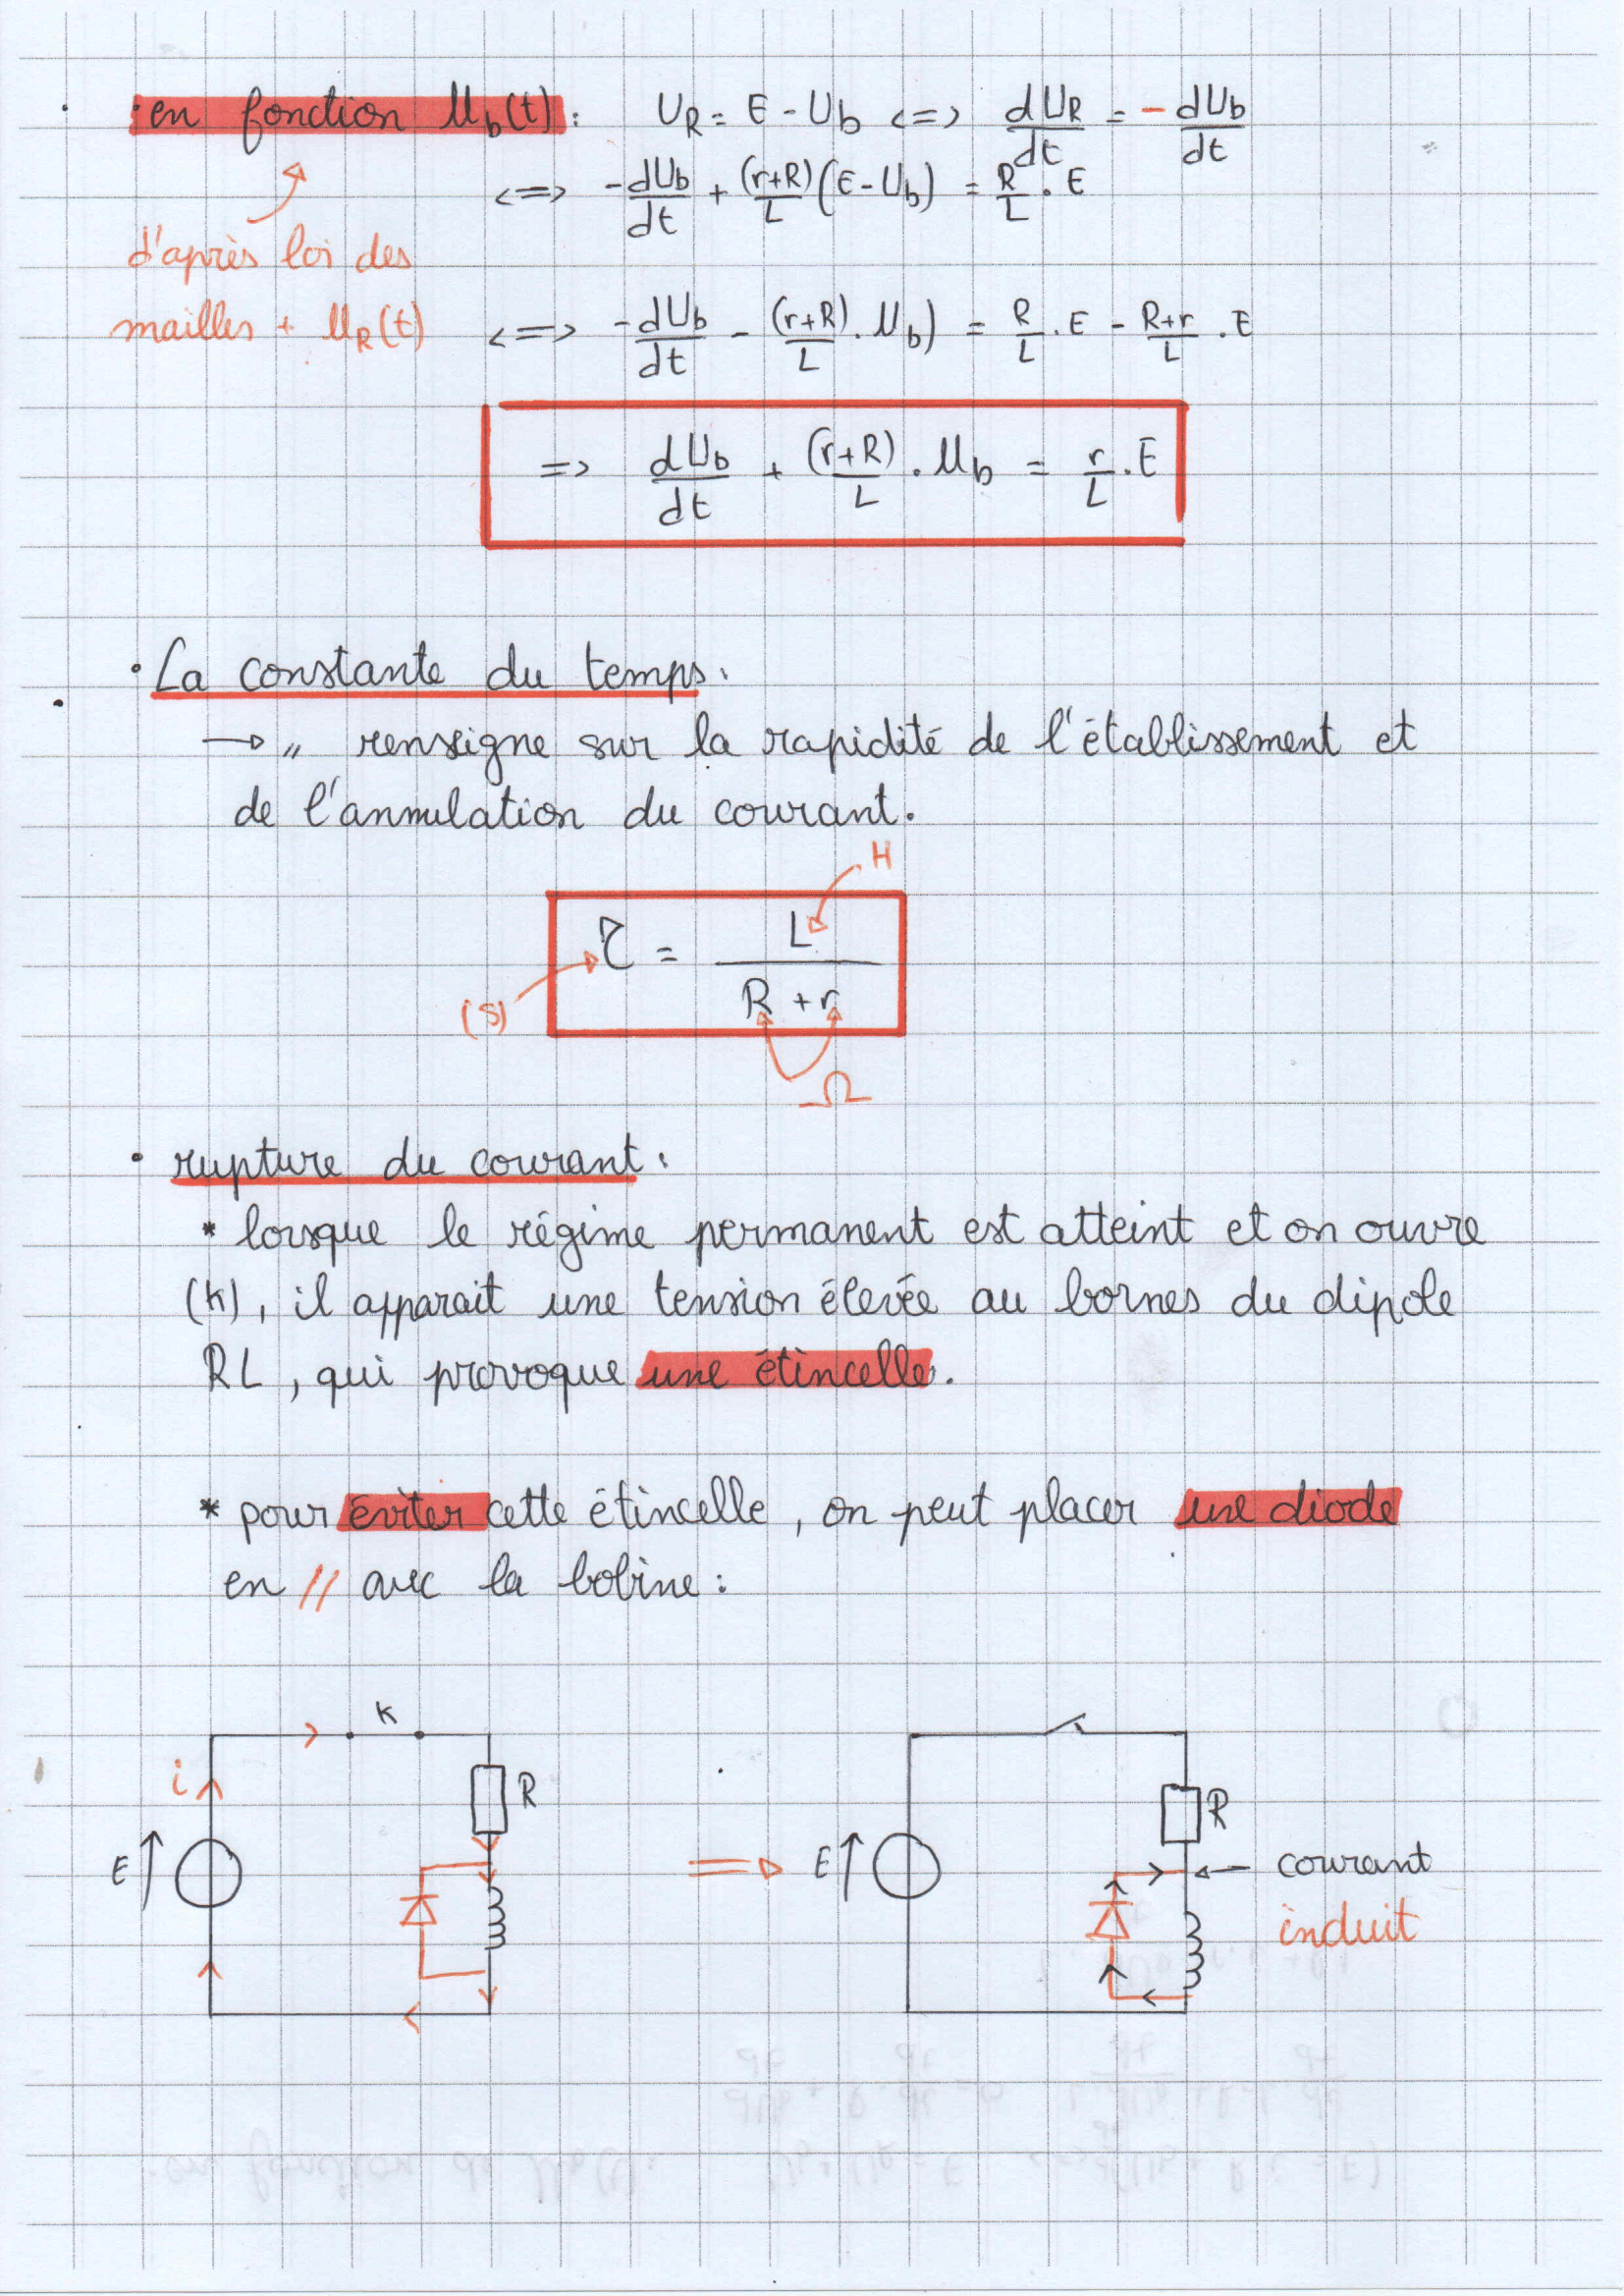 . en fonction Ub(t) : UR = E - Ub <=> dUR/dt = - dUb/dt
<=> -dUb/dt + (r+R)/L (E - Ub) = R/L . E
d'après loi des
mailles + UR(t) <=> -dUb/dt - (r+R)/L . Ub) = R/L . E - R+r/L . E
=> dUb/dt + (r+R)/L . Ub = r/L . E
• La constante du temps.
→ " renseigne sur la rapidité de l'établissement et
de l'annulation du courant.
H
(S) τ = L / R + r
Ω
• rupture du courant :
* lorsque le régime permanent est atteint et on ouvre
(K), il apparait une tension élevée au bornes du dipole
RL, qui provoque une étincelle.
* pour éviter cette étincelle, on peut placer une diode
en // avec la bobine :
K
i
R
E
R
E
courant
induit